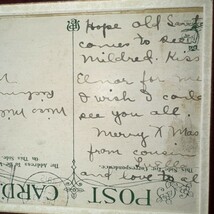 Hope old Santa
comes to see
Mildred. Kiss
Elinor for me
I wish I could
see you all.
Merry X Mas
from cousin
and love to all
POST CARD
This Side For Correspondence
The Address To Be
On This Side
Miss Mil